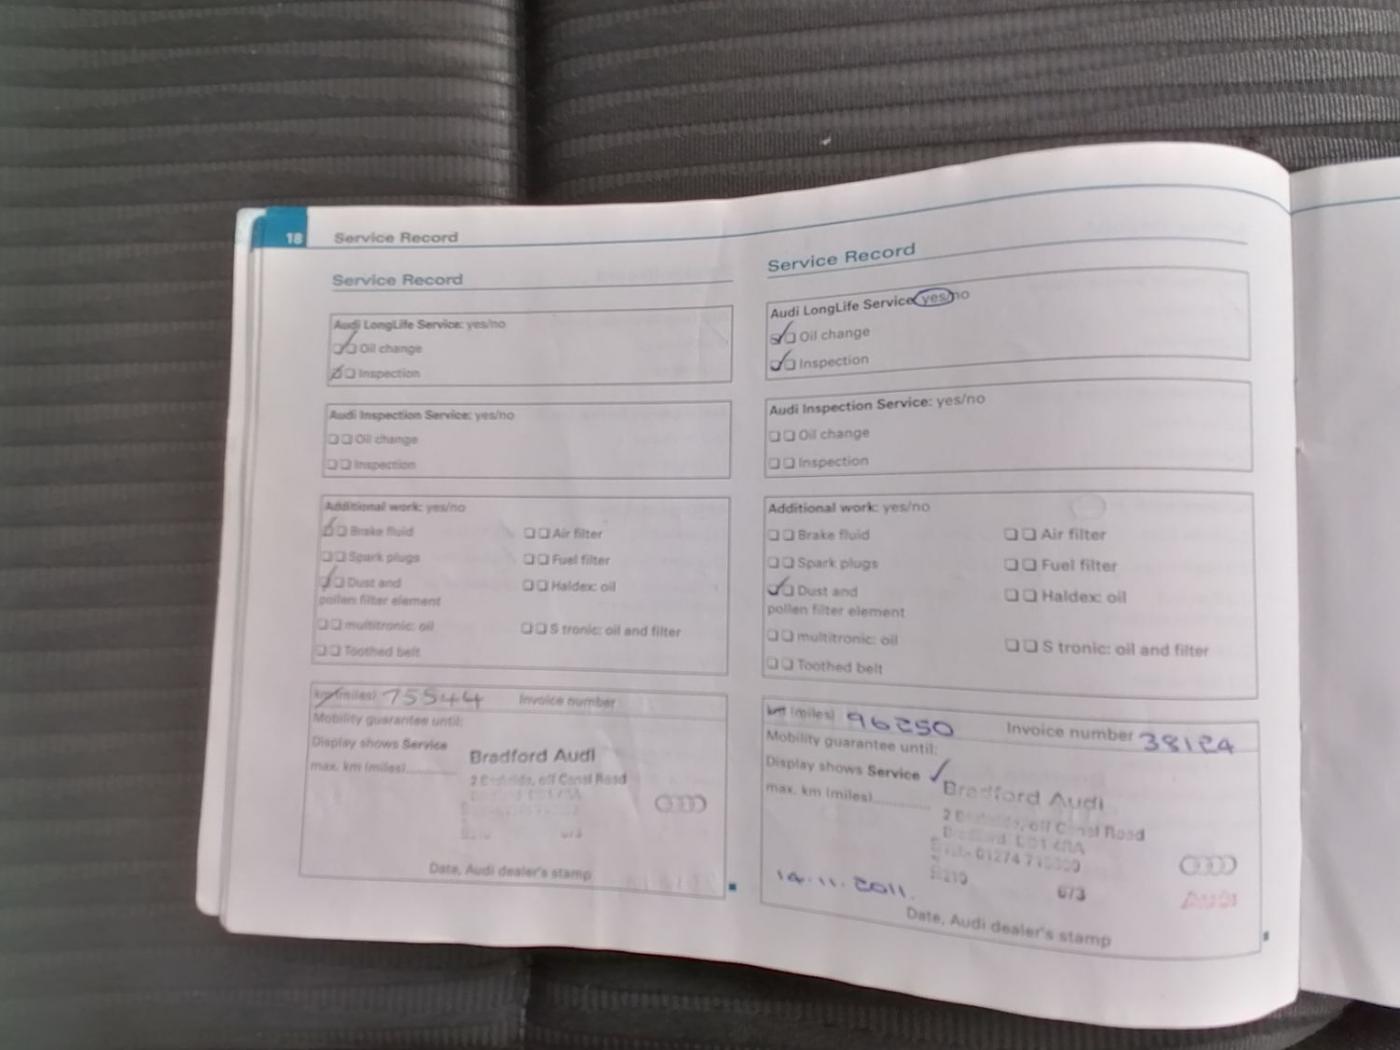 18 Service Record
Service Record
Audi LongLife Service: yes/no
Oil change
Inspection
Audi Inspection Service: yes/no
Oil change
Inspection
Additional work: yes/no
Brake fluid
Air filter
Spark plugs
Fuel filter
Dust and
pollen filter element
Haldex: oil
multitronic: oil
S tronic: oil and filter
Toothed belt
km (miles) 75544 Invoice number
Mobility guarantee until:
Display shows Service
max. km (miles)............
Bradford Audi
off Canal Road
Date, Audi dealer's stamp
Service Record
Audi LongLife Service yes/no
Oil change
Inspection
Audi Inspection Service: yes/no
Oil change
Inspection
Additional work: yes/no
Brake fluid
Air filter
Spark plugs
Fuel filter
Dust and
pollen filter element
Haldex: oil
multitronic: oil
S tronic: oil and filter
Toothed belt
km (miles) 96250 Invoice number 38124
Mobility guarantee until:
Display shows Service
max. km (miles)............
Bradford Audi
off Canal Road
Bradford
01274
673
Audi
14.11.2011.
Date, Audi dealer's stamp